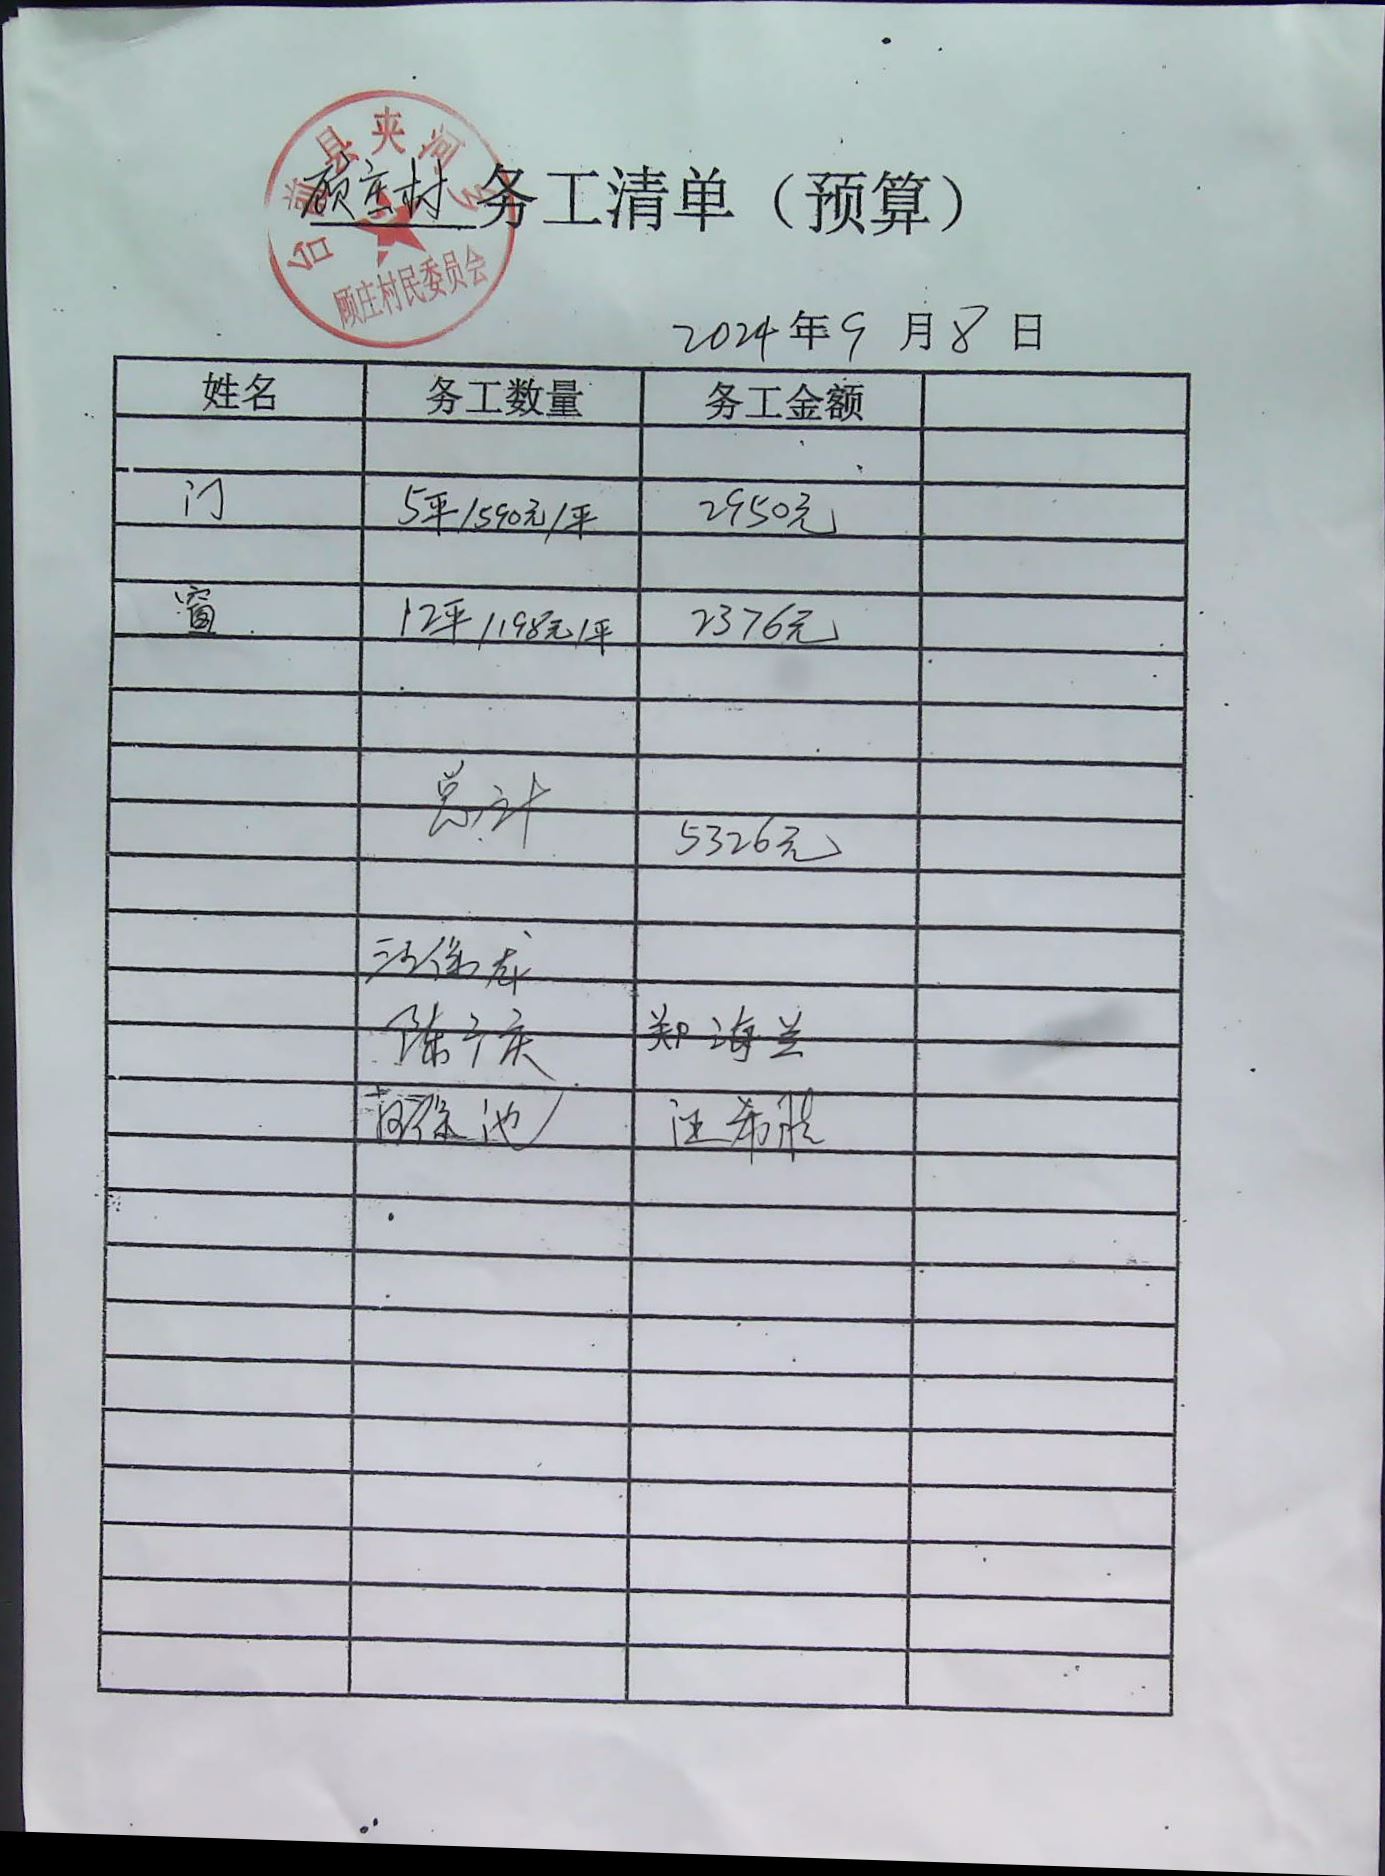 台前县夹河乡
顾庄村民委员会
顾庄村 务工清单（预算）
2024年9月8日
姓名 务工数量 务工金额
门 5平/590元/平 2950元
窗 12平/198元/平 2376元
总计
5326元
陈广庆 郑海兰
池 汪希胜